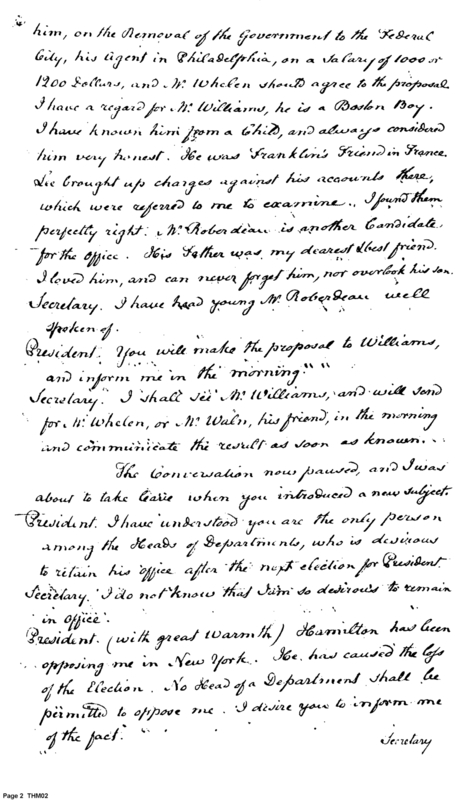 him, on the Removal of the Government to the Federal
City, his Agent in Philadelphia, on a Salary of 1000 or
1200 Dollars, and Mr. Whelen should agree to the proposal.
I have a regard for Mr. Williams, he is a Boston Boy.
I have known him from a Child, and always considered
him very honest. He was Franklin's Friend in France.
Lee brought up charges against his accounts there,
which were referred to me to examine. I found them
perfectly right. Mr. Roberdeau is another Candidate
for the Office. His Father was my dearest & best friend.
I loved him, and can never forget him, nor overlook his son.
Secretary. I have head young Mr. Roberdeau well
spoken of.
President. You will make the proposal to Williams,
and inform me in the morning."
Secretary. I shall see Mr. Williams, and will send
for Mr. Whelen, or Mr. Waln, his friend, in the morning
and communicate the result as soon as known.
The Conversation now paused, and I was
about to take leave when you introduced a new subject.
President. I have understood you are the only person
among the Heads of Departments, who is desirous
to retain his office after the next election for President.
Secretary. I do not know that I am so desirous to remain
in office.
President. (with great warmth) Hamilton has been
opposing me in New York. He has caused the loss
of the Election. No Head of a Department shall be
permitted to oppose me. I desire you to inform me
of the fact."
Secretary
Page 2 THM02